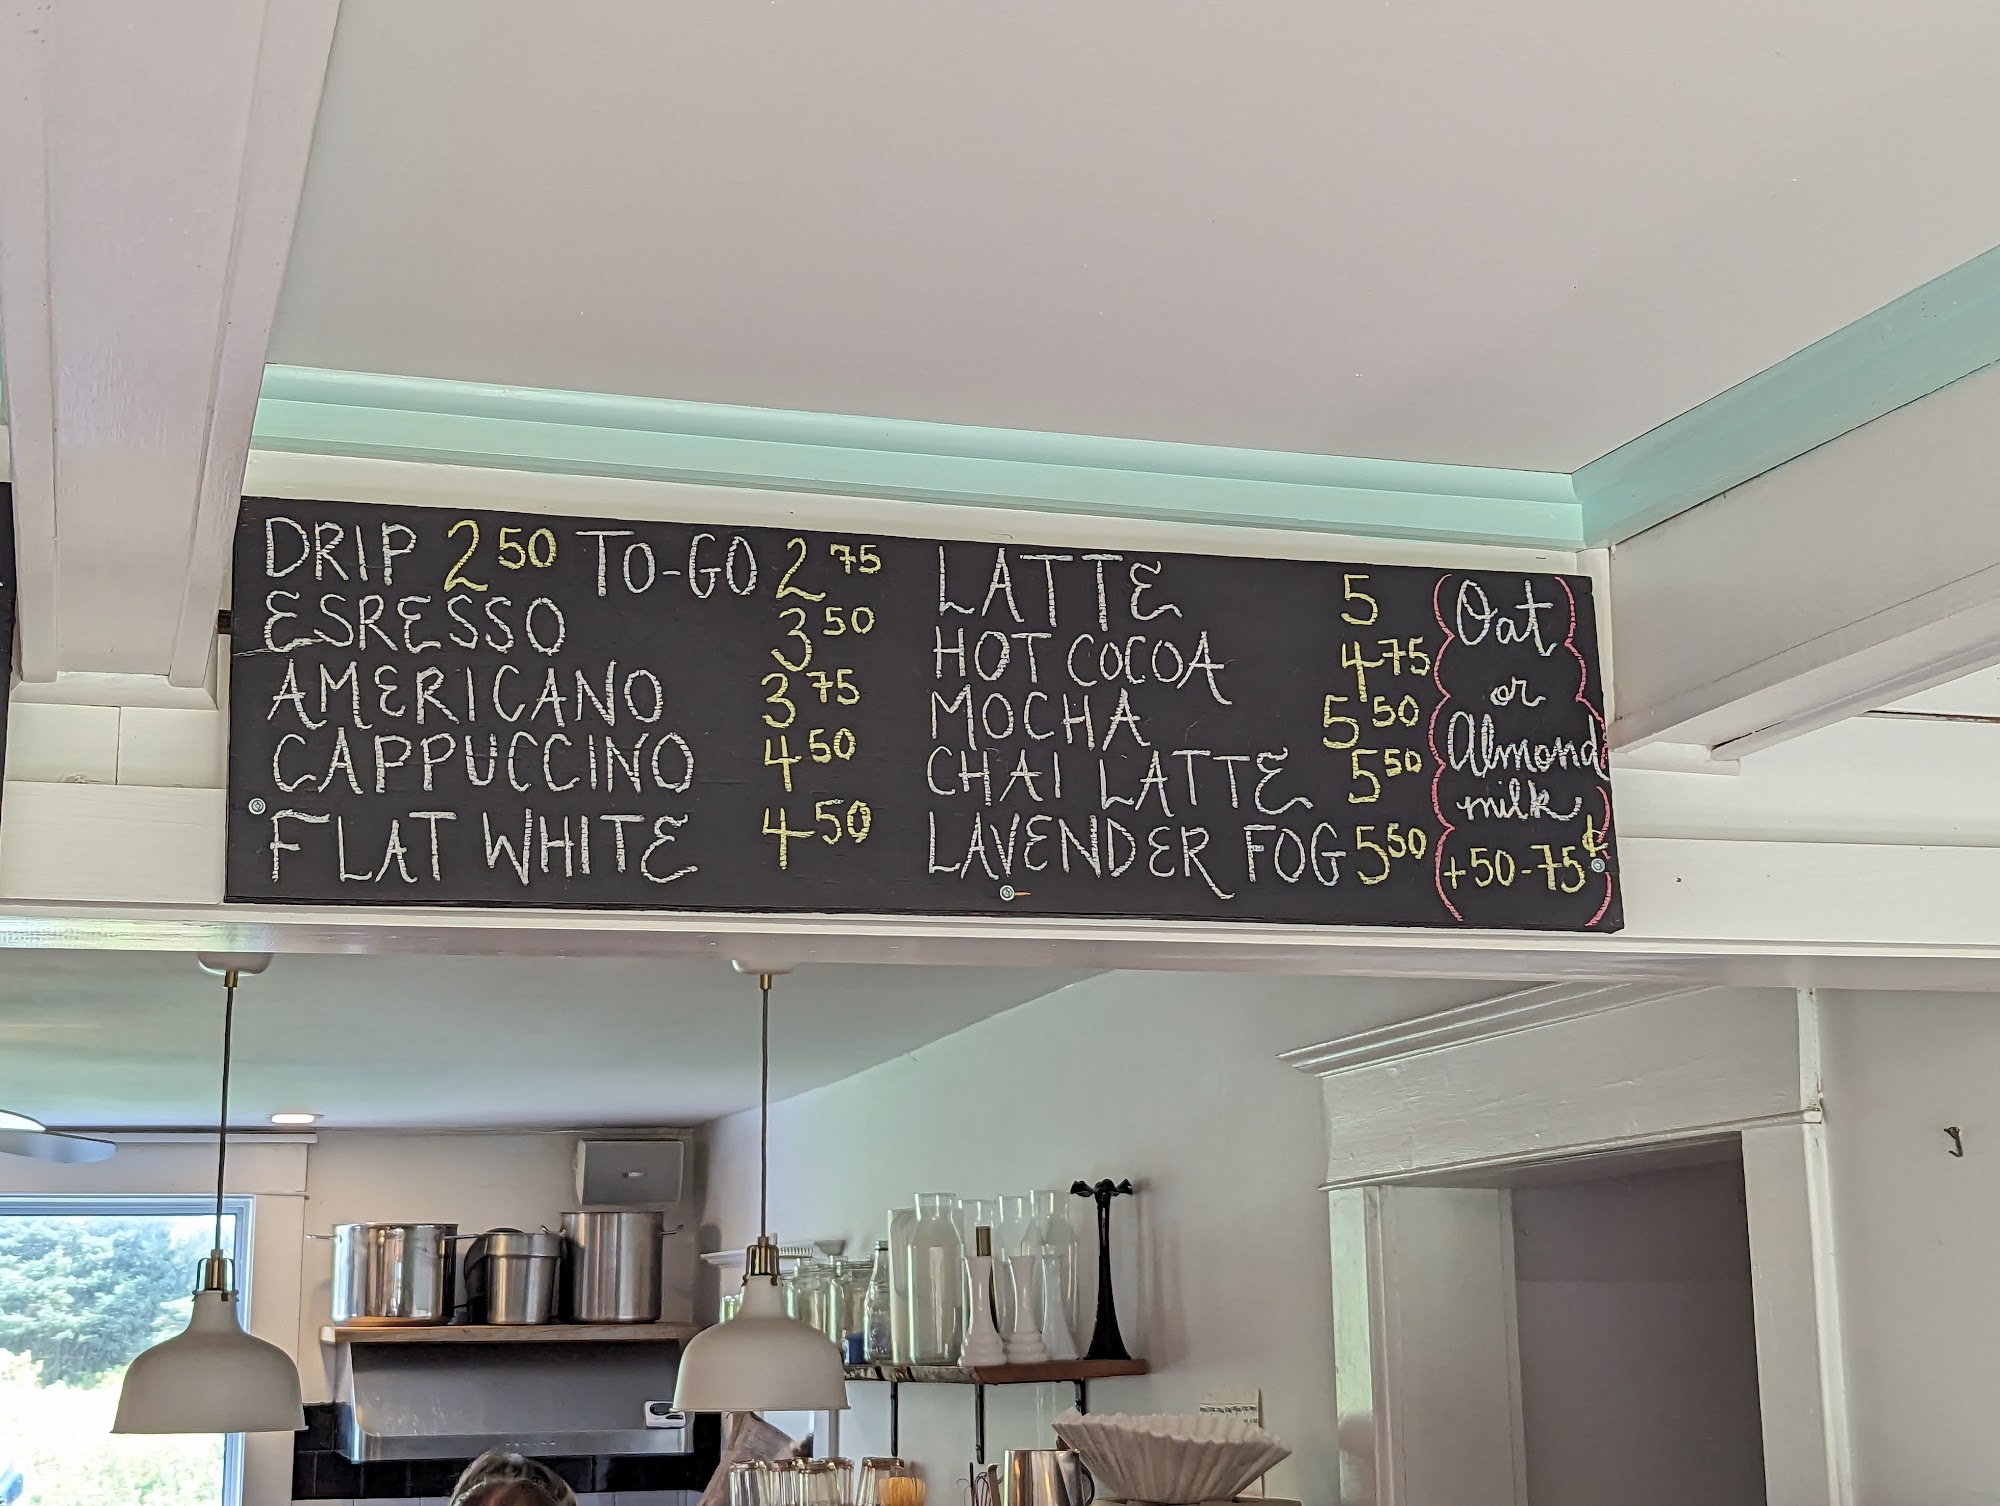 DRIP 2 50 TO-GO 2 75
ESRESSO 3 50
AMERICANO 3 75
CAPPUCCINO 4 50
FLAT WHITE 4 50
LATTE 5
HOT COCOA 4 75
MOCHA 5 50
CHAI LATTE 5 50
LAVENDER FOG 5 50
Oat
or
Almond
milk
+50-75¢